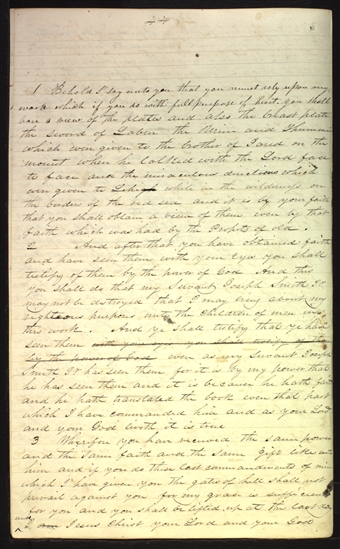 44
1 Behold I say unto you that you must rely upon my
word which if you do with full purpose of heart you shall
have a view of the plates and also the breast plate
the sword of Laben the Urim and Thumim
which ware given to the brother of Jared on the
mount when he talked with the Lord face
to face and the miraculous directions which
ware given to Lehi while in the wilderness on
the borders of the red sea and it is by your faith
that you shall obtain a view of them even by that
faith which was had by the Prophets of old.
2 And after that you have obtained faith
and have seen them with your eyes you shall
testify of them by the power of God And this
you shall do that my Servant Joseph Smith Jr
may not be destroyed that I may bring about my
righteous purposes unto the children of men in
this work. And ye shall testify that ye have
seen them with your eyes you shall testify of
by the power of God even as my Servant Joseph
Smith Jr has seen them for it is by my power that
he has seen them and it is because he hath faith
and he hath translated the book even that part
which I have commanded him and as your Lord
and your God liveth it is true
3 Wherefore you have received the same power
and the same faith and the same gift like unto
him and if you do these last commandments of mine
which I have given you the gates of hell shall not
prevail against you for my grace is sufficient
for you and you shall be lifted up at the last day
and I am Jesus Christ your Lord and your God